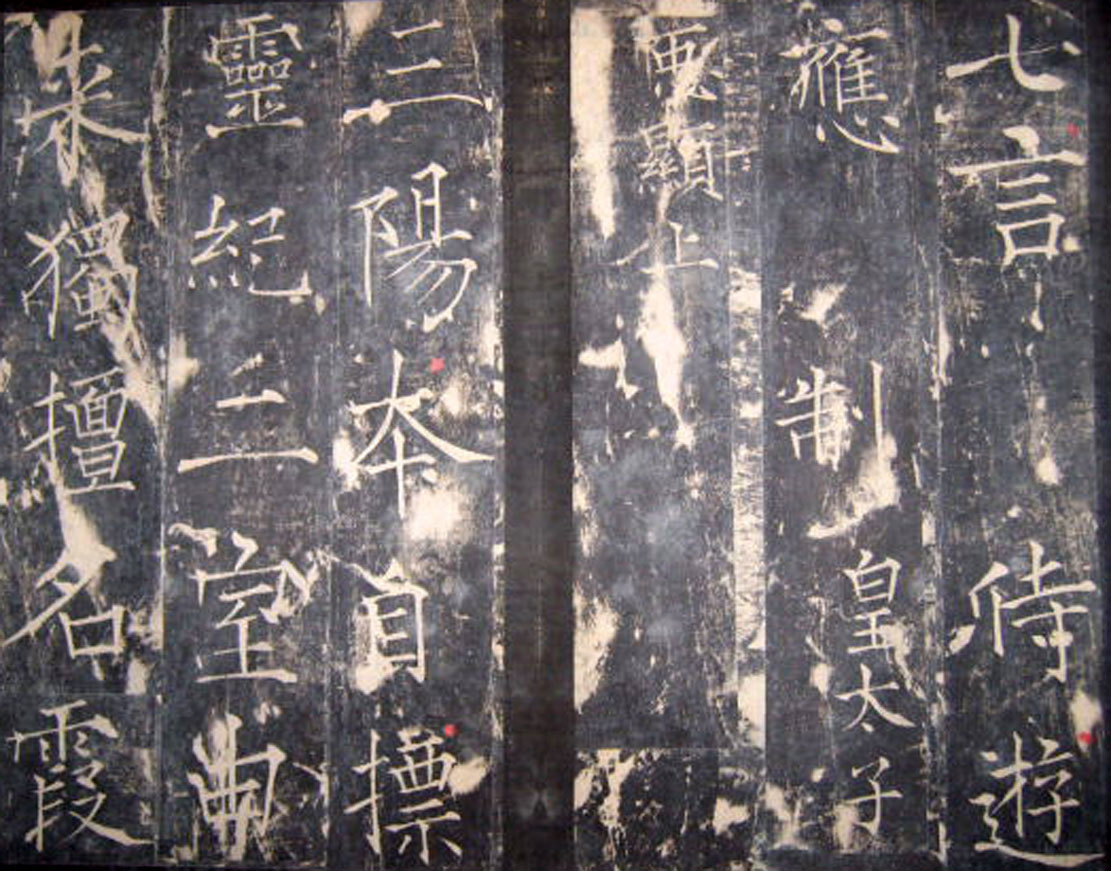 七言侍遊
應制皇太子
顯上
三陽夲自摽
靈紀二室由
来獨擅名霞